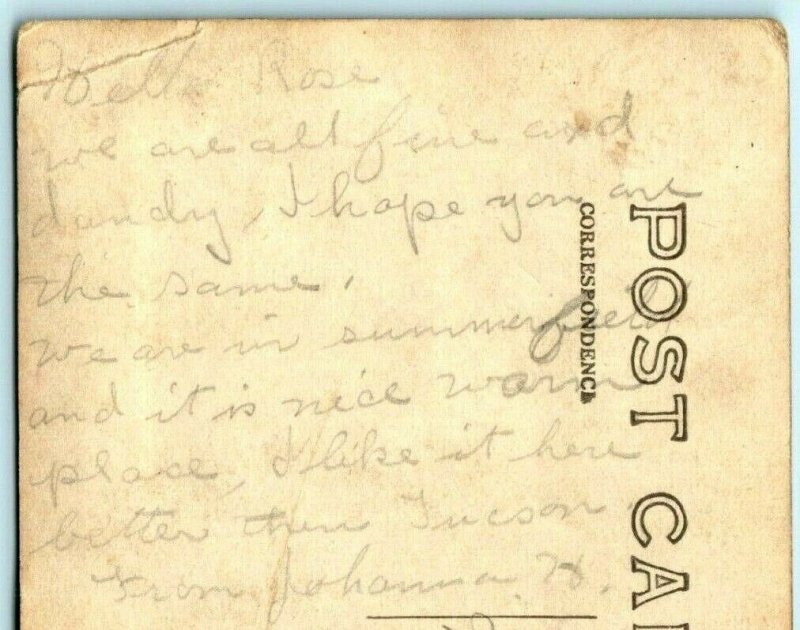 Hello Rose
we are all fine and
dandy, I hope you are
the same.
we are in summerfield
and it is nice warm
place, I like it here
better then Tucson.
From Johanna H.
CORRESPONDENCE
POST CA